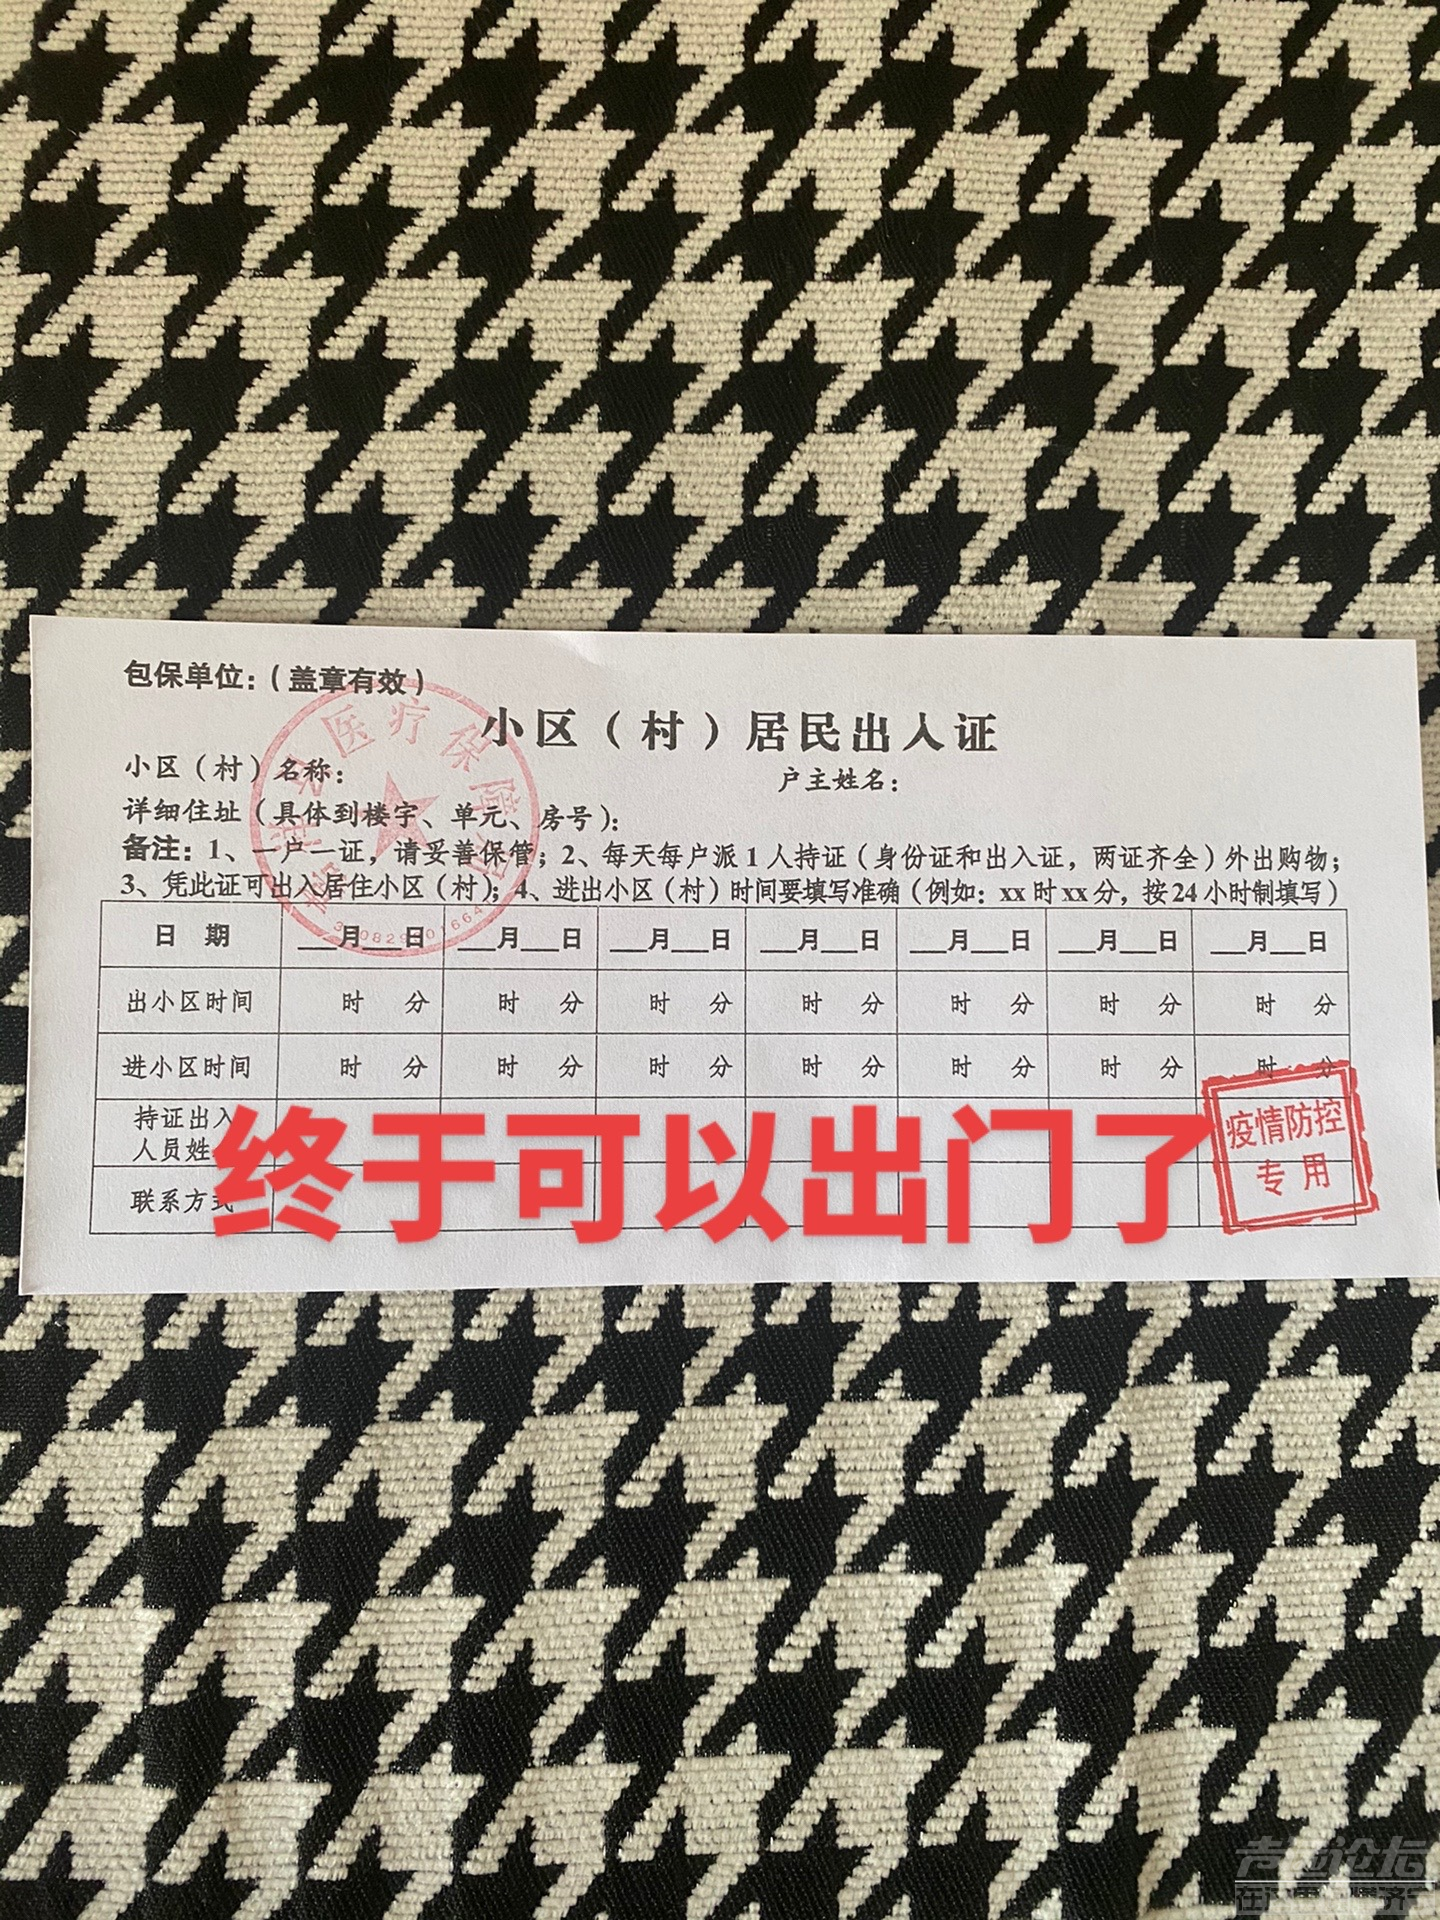 包保单位：（盖章有效）
小区（村）居民出入证
小区（村）名称：
户主姓名：
详细住址（具体到楼宇、单元、房号）：
备注：1、一户一证，请妥善保管；2、每天每户派1人持证（身份证和出入证，两证齐全）外出购物；
3、凭此证可出入居住小区（村）；4、进出小区（村）时间要填写准确（例如：xx时xx分，按24小时制填写）
医疗保障
日 期 ___月___日 ___月___日 ___月___日 ___月___日 ___月___日 ___月___日 ___月___日
出小区时间 时 分 时 分 时 分 时 分 时 分 时 分 时 分
进小区时间 时 分 时 分 时 分 时 分 时 分 时 分 时 分
持证出入
人员姓
联系方式
疫情防控
专用
终于可以出门了
论坛